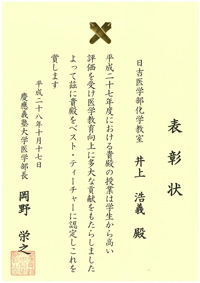 表彰状
日吉医学部化学教室
井上 浩義 殿
平成二十七年度における貴殿の授業は学生から高い
評価を受け医学教育向上に多大な貢献をもたらしました
よって茲に貴殿をベスト・ティーチャーに認定しこれを
賞します
平成二十八年十月十七日
慶應義塾大学医学部長
岡野 栄之